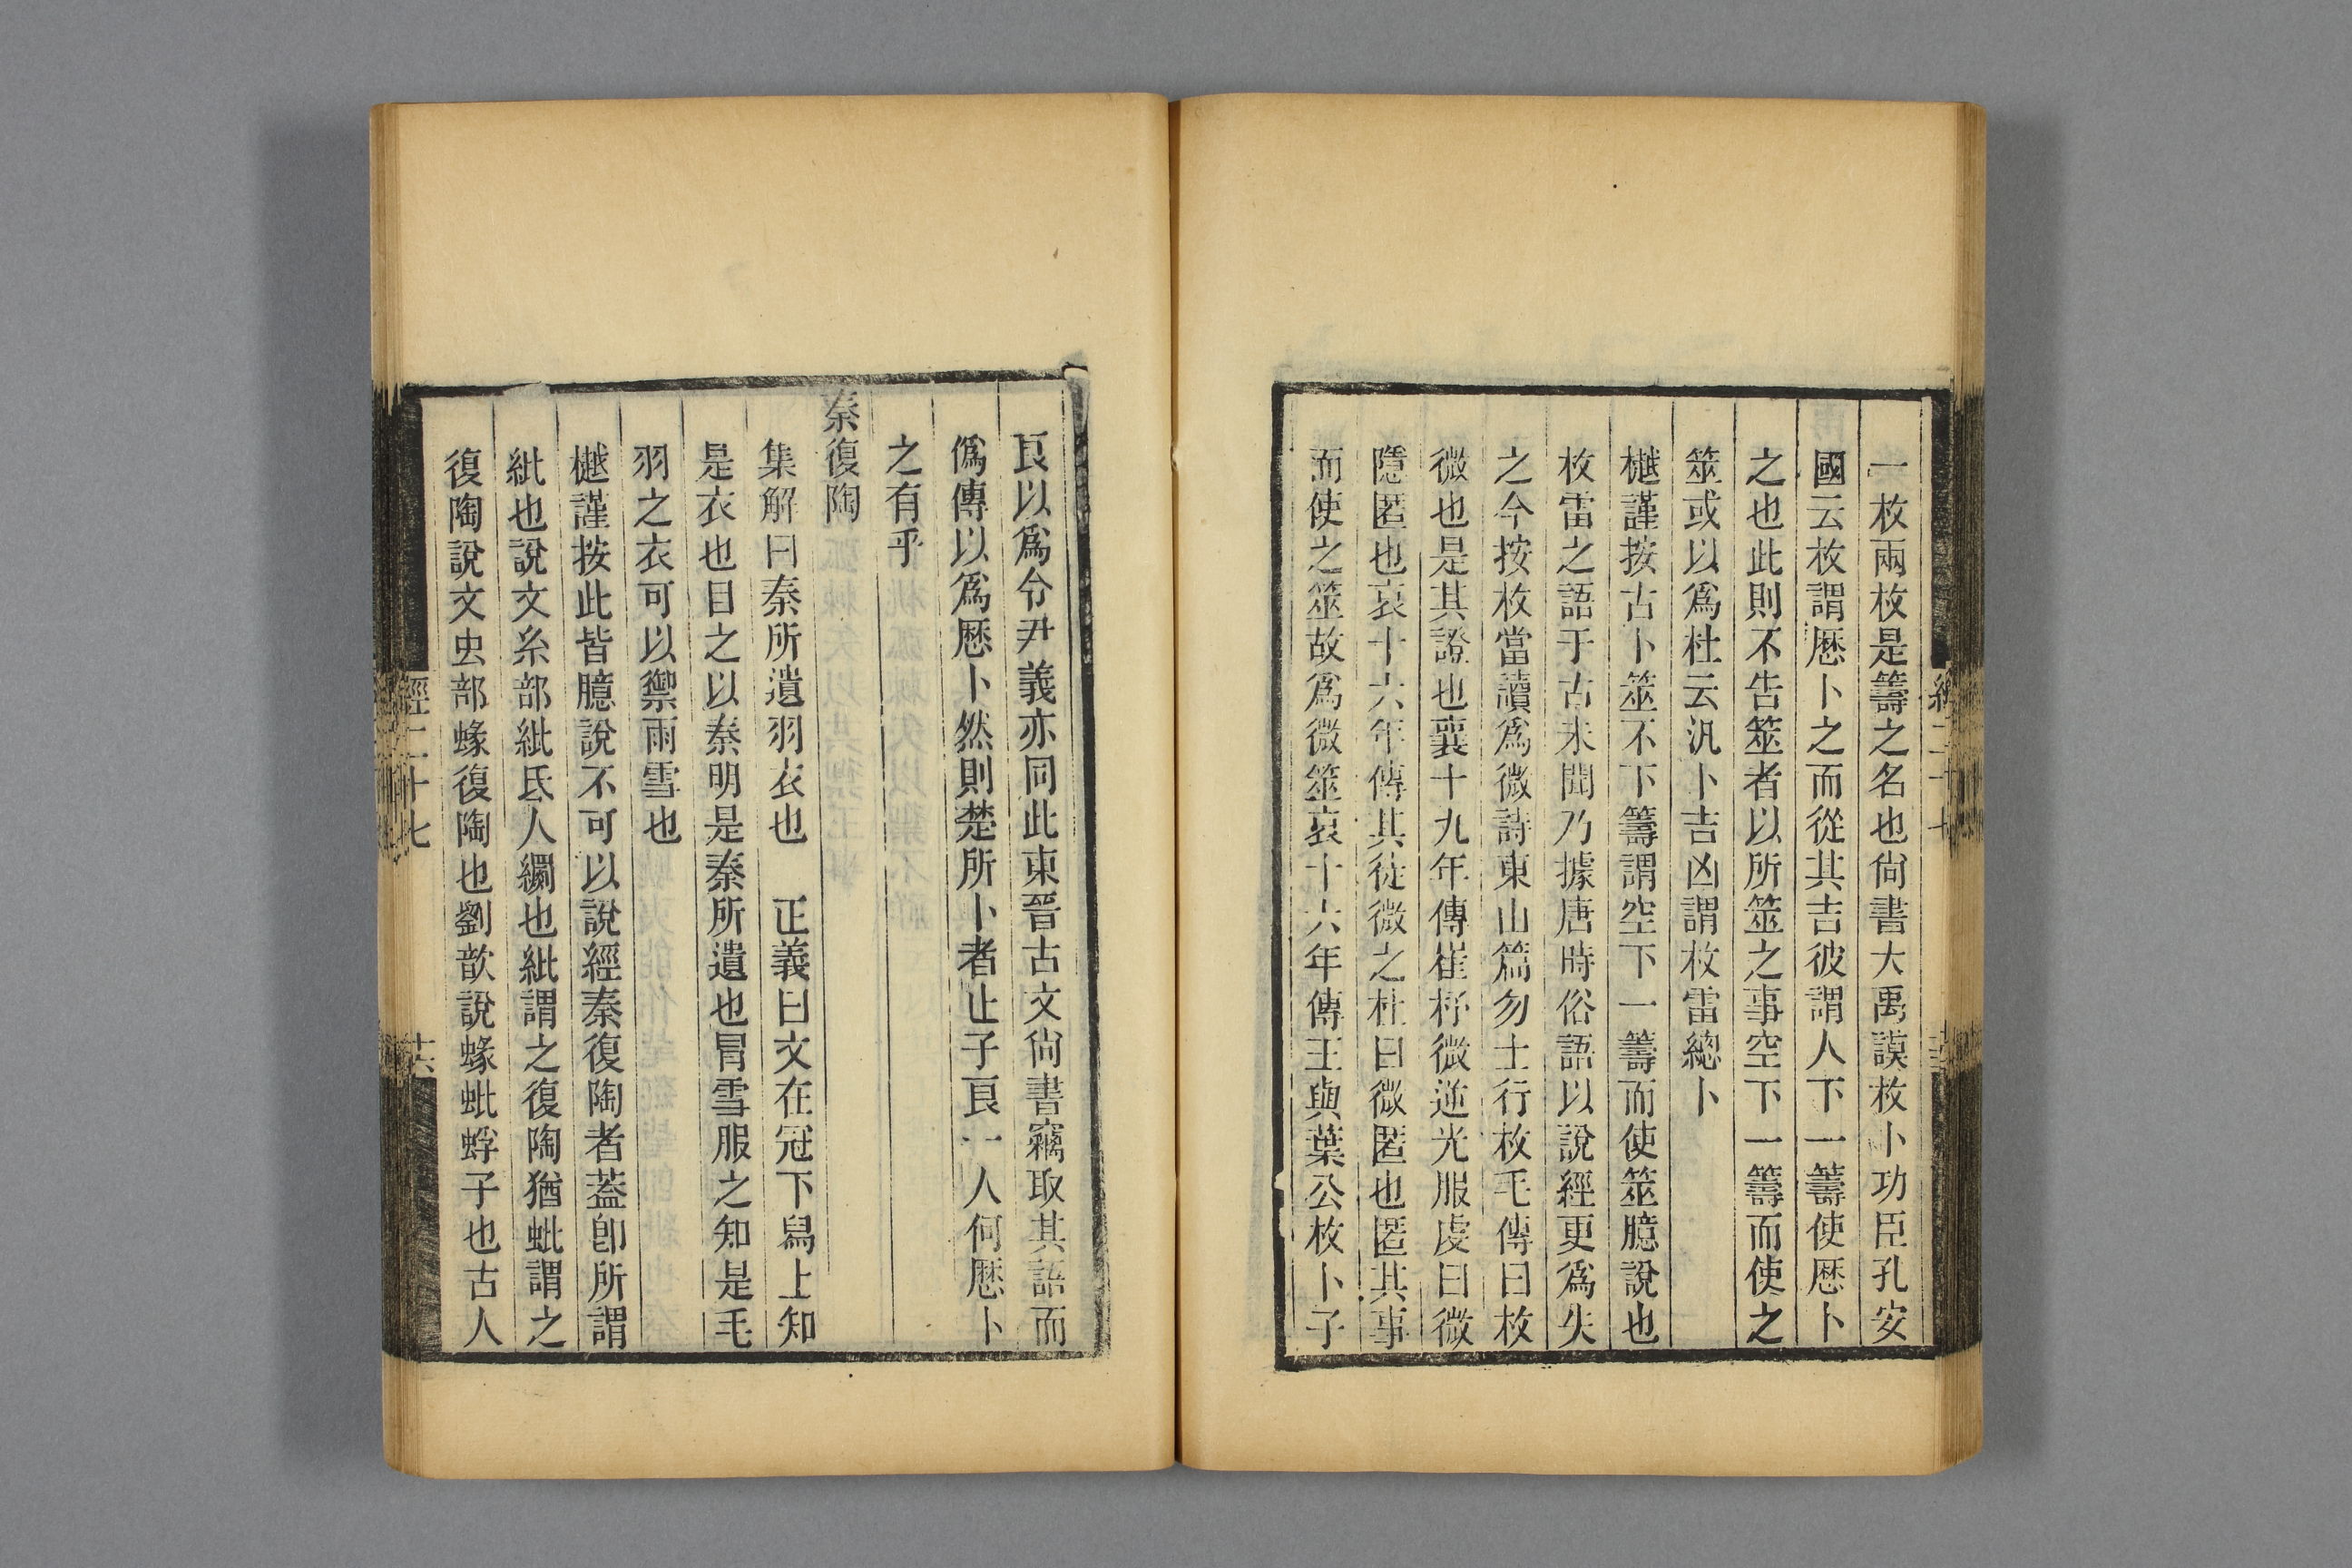 一枚兩枚是籌之名也尙書大禹謨枚卜功臣孔安
國云枚謂厯卜之而從其吉彼謂人下一籌使厯卜
之也此則不告筮者以所筮之事空下一籌而使之
筮或以爲杜云汎卜吉凶謂枚雷總卜
樾謹按古卜筮不下籌謂空下一籌而使筮臆說也
枚雷之語于古未聞乃據唐時俗語以說經更爲失
之今按枚當讀爲微詩東山篇勿士行枚毛傳曰枚
微也是其證也襄十九年傳崔杼微逆光服虔曰微
隱匿也哀十六年傳其徒微之杜曰微匿也匿其事
而使之筮故爲微筮哀十六年傳王與葉公枚卜子
良以爲令尹義亦同此東晉古文尙書竊取其語而
僞傳以爲厯卜然則楚所卜者止子良一人何厯卜
之有乎
秦復陶
集解曰秦所遺羽衣也　正義曰文在冠下舄上知
是衣也目之以秦明是秦所遺也冒雪服之知是毛
羽之衣可以禦雨雪也
樾謹按此皆臆說不可以說經秦復陶者蓋卽所謂
紕也說文糸部紕氐人繝也紕謂之復陶猶蚍謂之
復陶說文虫部蝝復陶也劉歆說蝝蚍蜉子也古人
經二十七
十六